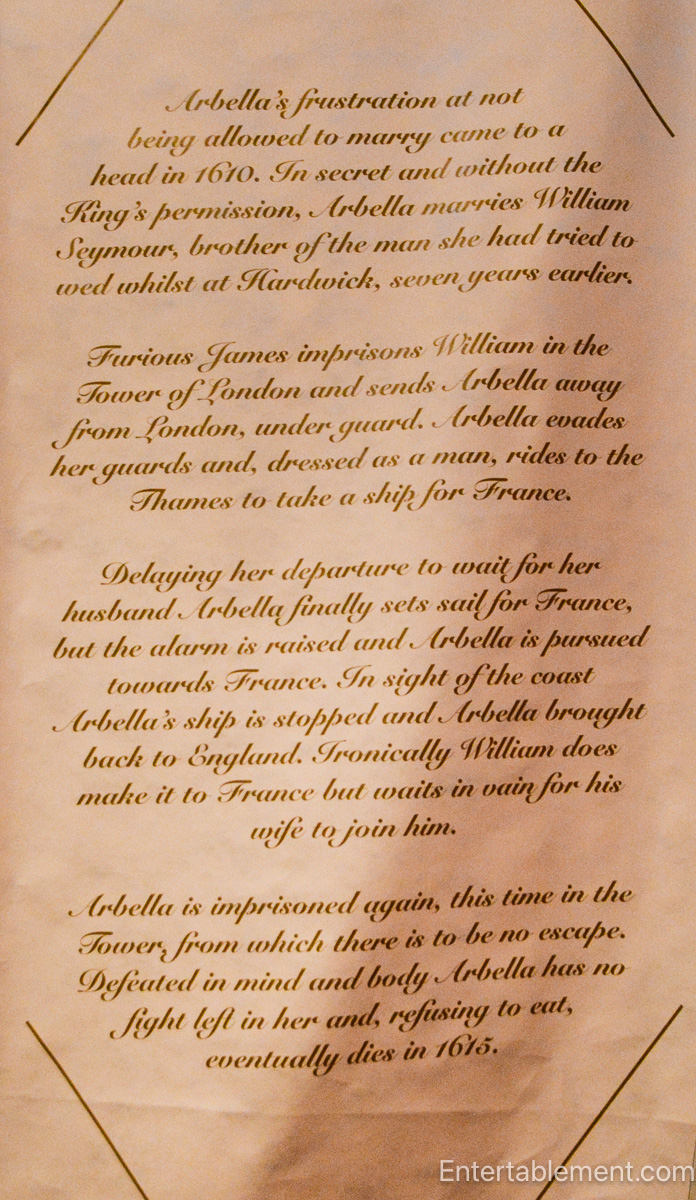 Arbella's frustration at not
being allowed to marry came to a
head in 1610. In secret and without the
King's permission, Arbella marries William
Seymour, brother of the man she had tried to
wed whilst at Hardwick, seven years earlier.
Furious James imprisons William in the
Tower of London and sends Arbella away
from London, under guard. Arbella evades
her guards and, dressed as a man, rides to the
Thames to take a ship for France.
Delaying her departure to wait for her
husband Arbella finally sets sail for France,
but the alarm is raised and Arbella is pursued
towards France. In sight of the coast
Arbella's ship is stopped and Arbella brought
back to England. Ironically William does
make it to France but waits in vain for his
wife to join him.
Arbella is imprisoned again, this time in the
Tower, from which there is to be no escape.
Defeated in mind and body Arbella has no
fight left in her and, refusing to eat,
eventually dies in 1615.
Entertablement.com